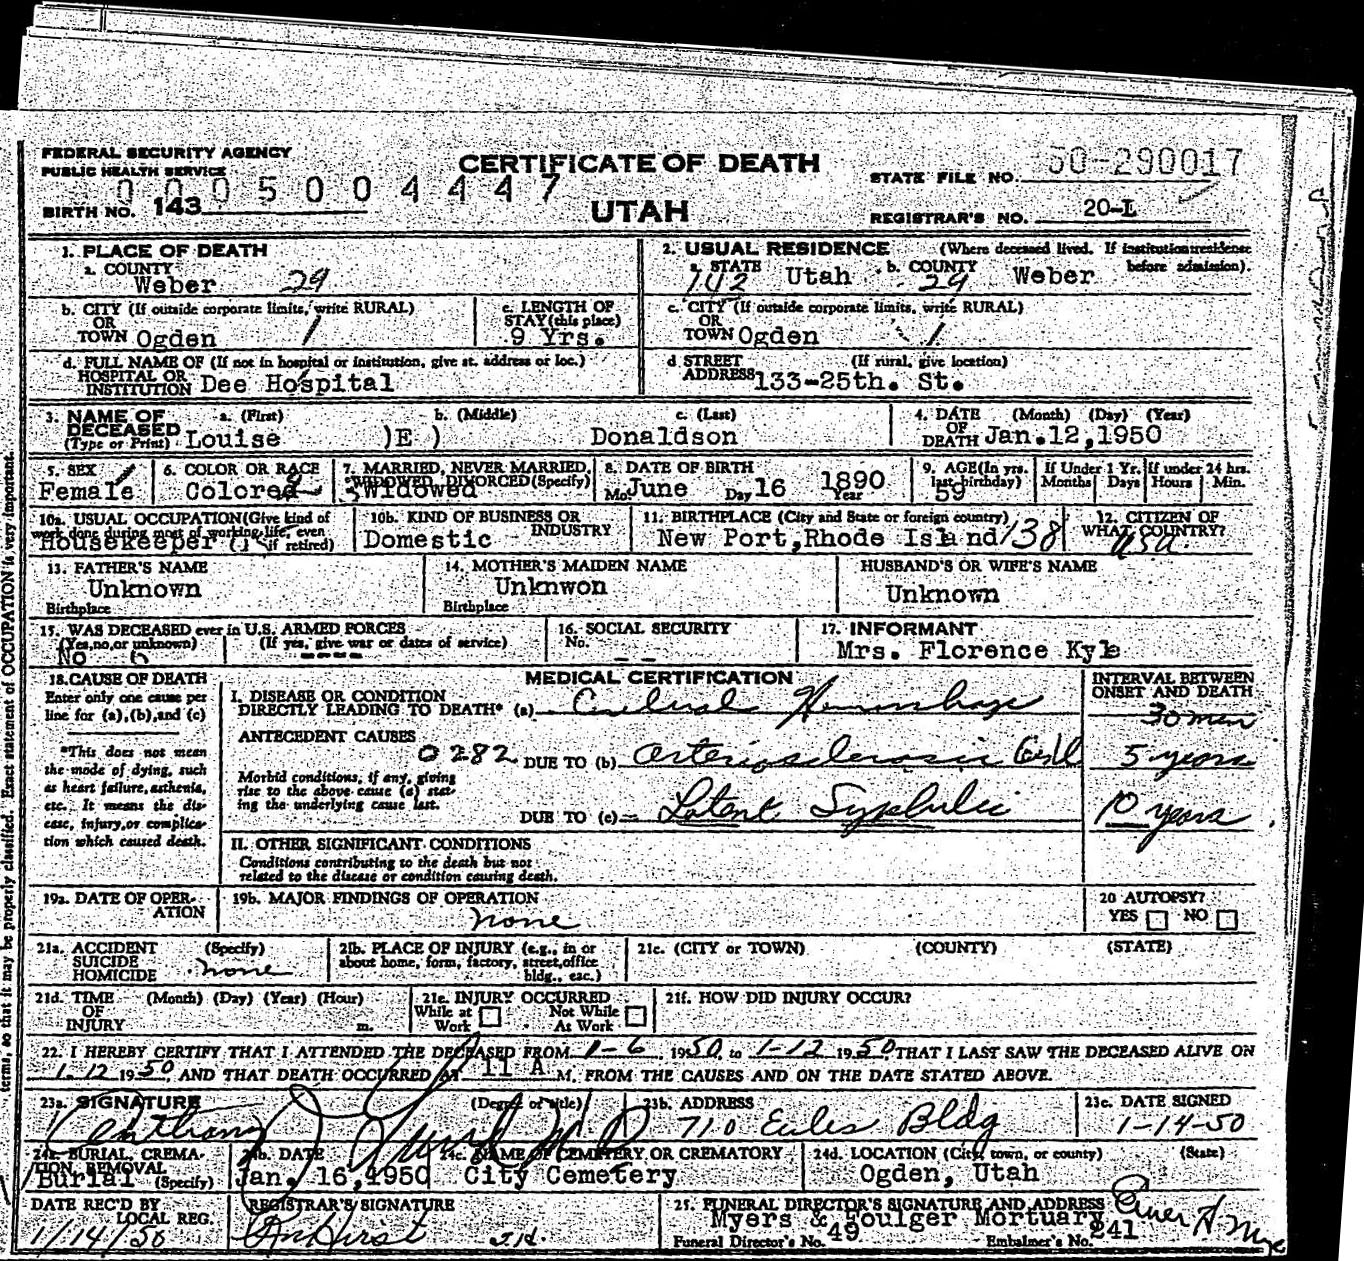 FEDERAL SECURITY AGENCY
PUBLIC HEALTH SERVICE
CERTIFICATE OF DEATH
STATE FILE NO. 50-290017
0 0 0 5 0 0 4 4 4 7
BIRTH NO. 143
UTAH
REGISTRAR'S NO. 20-L
1. PLACE OF DEATH
a. COUNTY
Weber 29
2. USUAL RESIDENCE (Where deceased lived. If institution residence before admission).
a. STATE Utah b. COUNTY Weber
142 29
b. CITY (If outside corporate limits, write RURAL)
OR
TOWN Ogden 1
c. LENGTH OF
STAY (this place)
9 Yrs.
c. CITY (If outside corporate limits, write RURAL)
OR
TOWN Ogden 1
d. FULL NAME OF (If not in hospital or institution, give st. address or loc.)
HOSPITAL OR
INSTITUTION Dee Hospital
d STREET (If rural, give location)
ADDRESS 133-25th. St.
3. NAME OF DECEASED (Type or Print)
a. (First) b. (Middle) c. (Last)
Louise )E ) Donaldson
4. DATE (Month) (Day) (Year)
OF
DEATH Jan.12,1950
5. SEX
Female
6. COLOR OR RACE
Colored
7. MARRIED, NEVER MARRIED,
WIDOWED, DIVORCED (Specify)
Widowed
8. DATE OF BIRTH
Mo. June Day 16 Year 1890
9. AGE (In yrs.
last birthday)
59
If Under 1 Yr.
Months Days
If under 24 hrs.
Hours Min.
10a. USUAL OCCUPATION (Give kind of
work done during most of working life, even
if retired)
Housekeeper
10b. KIND OF BUSINESS OR
INDUSTRY
Domestic
11. BIRTHPLACE (City and State or foreign country)
New Port,Rhode Island 138
12. CITIZEN OF
WHAT COUNTRY?
USA.
13. FATHER'S NAME
Unknown
Birthplace
14. MOTHER'S MAIDEN NAME
Unknwon
Birthplace
HUSBAND'S OR WIFE'S NAME
Unknown
15. WAS DECEASED ever in U.S. ARMED FORCES
(Yes, no, or unknown) (If yes, give war or dates of service)
No ----
16. SOCIAL SECURITY
No. --
17. INFORMANT
Mrs. Florence Kyle
18. CAUSE OF DEATH
Enter only one cause per
line for (a), (b), and (c)
*This does not mean
the mode of dying, such
as heart failure, asthenia,
etc. It means the dis-
ease, injury, or complica-
tion which caused death.
MEDICAL CERTIFICATION
INTERVAL BETWEEN
ONSET AND DEATH
I. DISEASE OR CONDITION
DIRECTLY LEADING TO DEATH* (a) Cerebral Hemorrhage
30 min
ANTECEDENT CAUSES
0282 DUE TO (b) Arteriosclerosis
5 years
Morbid conditions, if any, giving
rise to the above cause (a) stat-
ing the underlying cause last.
DUE TO (c) Latent Syphilis
10 years
II. OTHER SIGNIFICANT CONDITIONS
Conditions contributing to the death but not
related to the disease or condition causing death.
19a. DATE OF OPER-
ATION
19b. MAJOR FINDINGS OF OPERATION
none
20 AUTOPSY?
YES NO
21a. ACCIDENT (Specify)
SUICIDE
HOMICIDE none
21b. PLACE OF INJURY (e.g., in or
about home, form, factory, street, office
bldg., esc.)
21c. (CITY or TOWN) (COUNTY) (STATE)
21d. TIME (Month) (Day) (Year) (Hour)
OF
INJURY m.
21e. INJURY OCCURRED
While at Work Not While At Work
21f. HOW DID INJURY OCCUR?
22. I HEREBY CERTIFY THAT I ATTENDED THE DECEASED FROM 1-6, 1950, to 1-12 1950 THAT I LAST SAW THE DECEASED ALIVE ON
1-12 1950, AND THAT DEATH OCCURRED AT 11 A M. FROM THE CAUSES AND ON THE DATE STATED ABOVE.
23a. SIGNATURE (Degree or title)
Anthony M.D.
23b. ADDRESS
710 Eccles Bldg
23c. DATE SIGNED
1-14-50
24a. BURIAL, CREMA-
TION, REMOVAL
(Specify)
Burial
24b. DATE
Jan. 16,1950
24c. NAME OF CEMETERY OR CREMATORY
City Cemetery
24d. LOCATION (City, town, or county) (State)
Ogden, Utah
DATE REC'D BY
LOCAL REG.
1/14/50
REGISTRAR'S SIGNATURE
25. FUNERAL DIRECTOR'S SIGNATURE AND ADDRESS
Myers & Foulger Mortuary
Funeral Director's No. 49 Embalmer's No. 241
terms, so that it may be properly classified. Exact statement of OCCUPATION is very important.